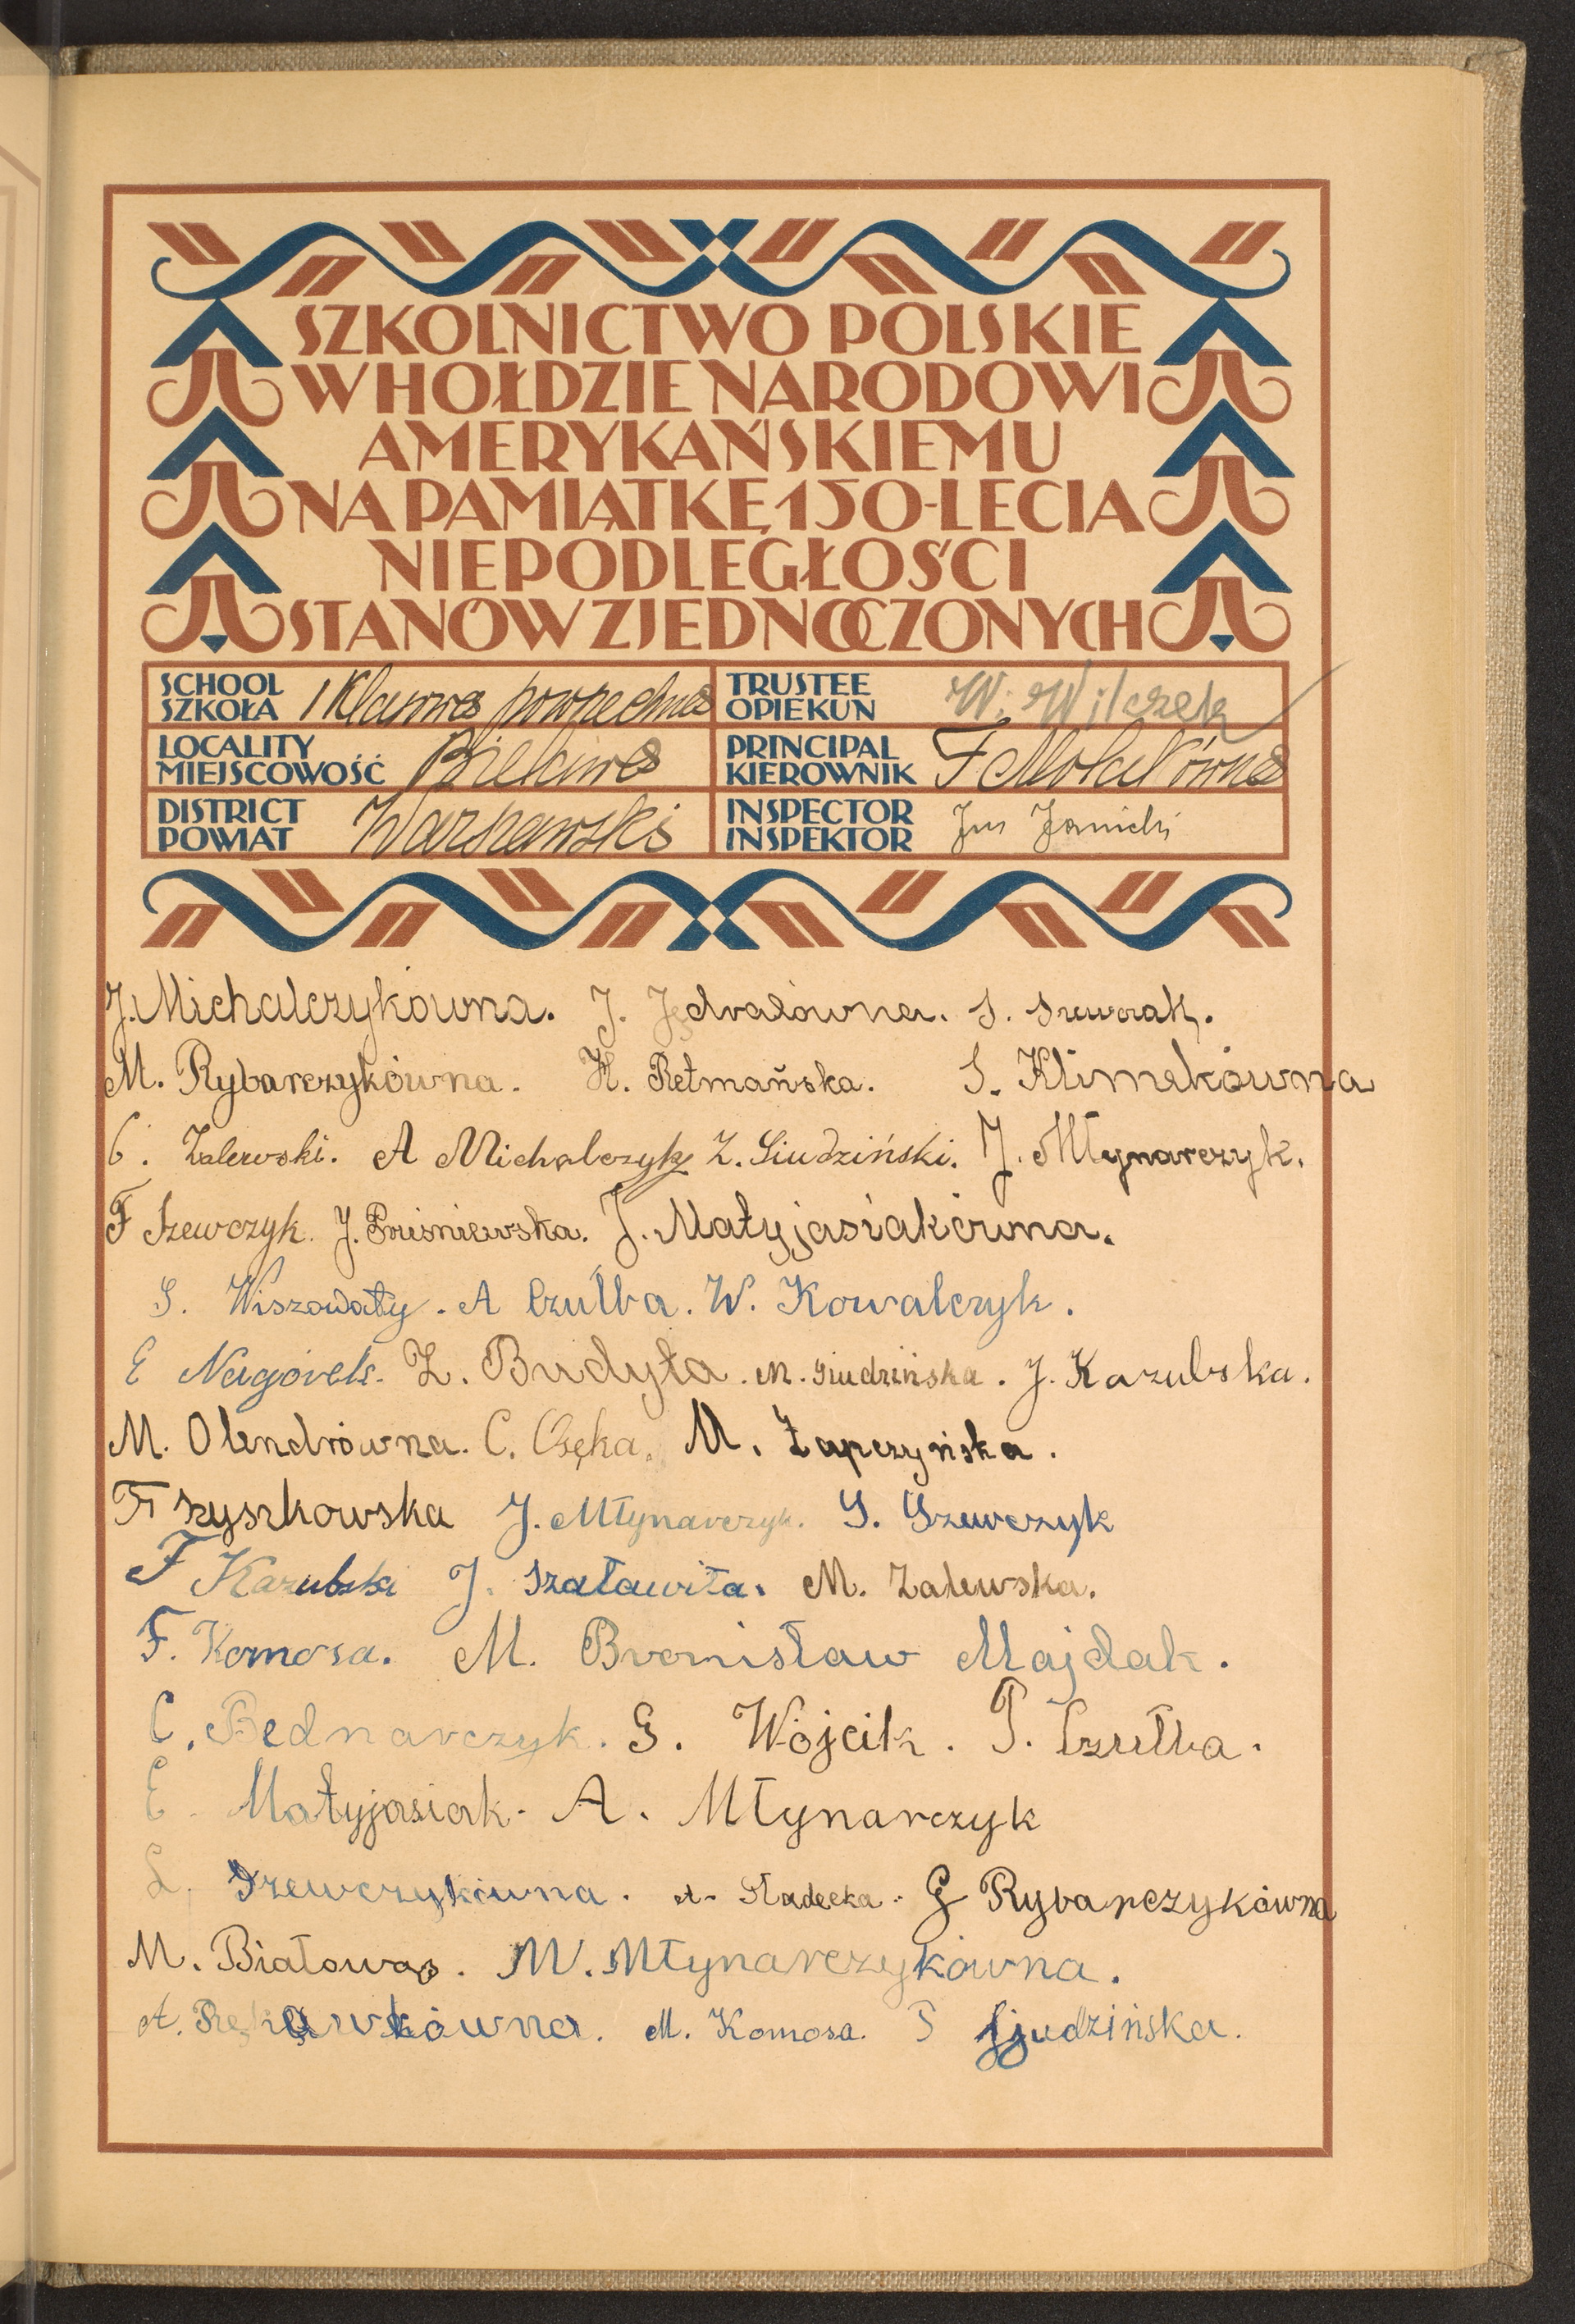 SZKOLNICTWO POLSKIE
W HOŁDZIE NARODOWI
AMERYKAŃSKIEMU
NA PAMIĄTKĘ 150-LECIA
NIEPODLEGŁOŚCI
STANÓW ZJEDNOCZONYCH
SCHOOL
SZKOŁA 1 Klasowa powszechna
TRUSTEE
OPIEKUN W. Wilczek
LOCALITY
MIEJSCOWOŚĆ Bielawa
PRINCIPAL
KIEROWNIK F
DISTRICT
POWIAT Warszawski
INSPECTOR
INSPEKTOR Janicki
J. Michalczykówna. J. Jędralówna. S. Szewczak.
M. Rybarczykówna. H. Retmańska. S. Klimekówna
C. Zalewski. A Michalczyk Z. Siudziński. J. Młynarczyk.
F Szewczyk. J. Prusniewska. J. Matyjasiakówna.
S. Wiszowaty. A Czułba. W. Kowalczyk.
E Nagórek. Z. Budyta. M. Siudzińska. J. Kazubska.
M. Olendrówna. C. Osęka. M. Łapczyńska.
F Szyszkowska J. Młynarczyk. S. Szewczyk
F Kazubski J. Szaławiła. M. Zalewska.
F. Komosa. M. Bronisław Majdak.
C. Bednarczyk. G. Wójcik. P. Czułba.
E. Matyjasiak. A. Młynarczyk
L. Szewczykówna. A. Sładecka. G Rybarczykówna
M. Białowąs. M. Młynarczykówna.
A. Rękawkówna. M. Komosa. S Sjudzińska.